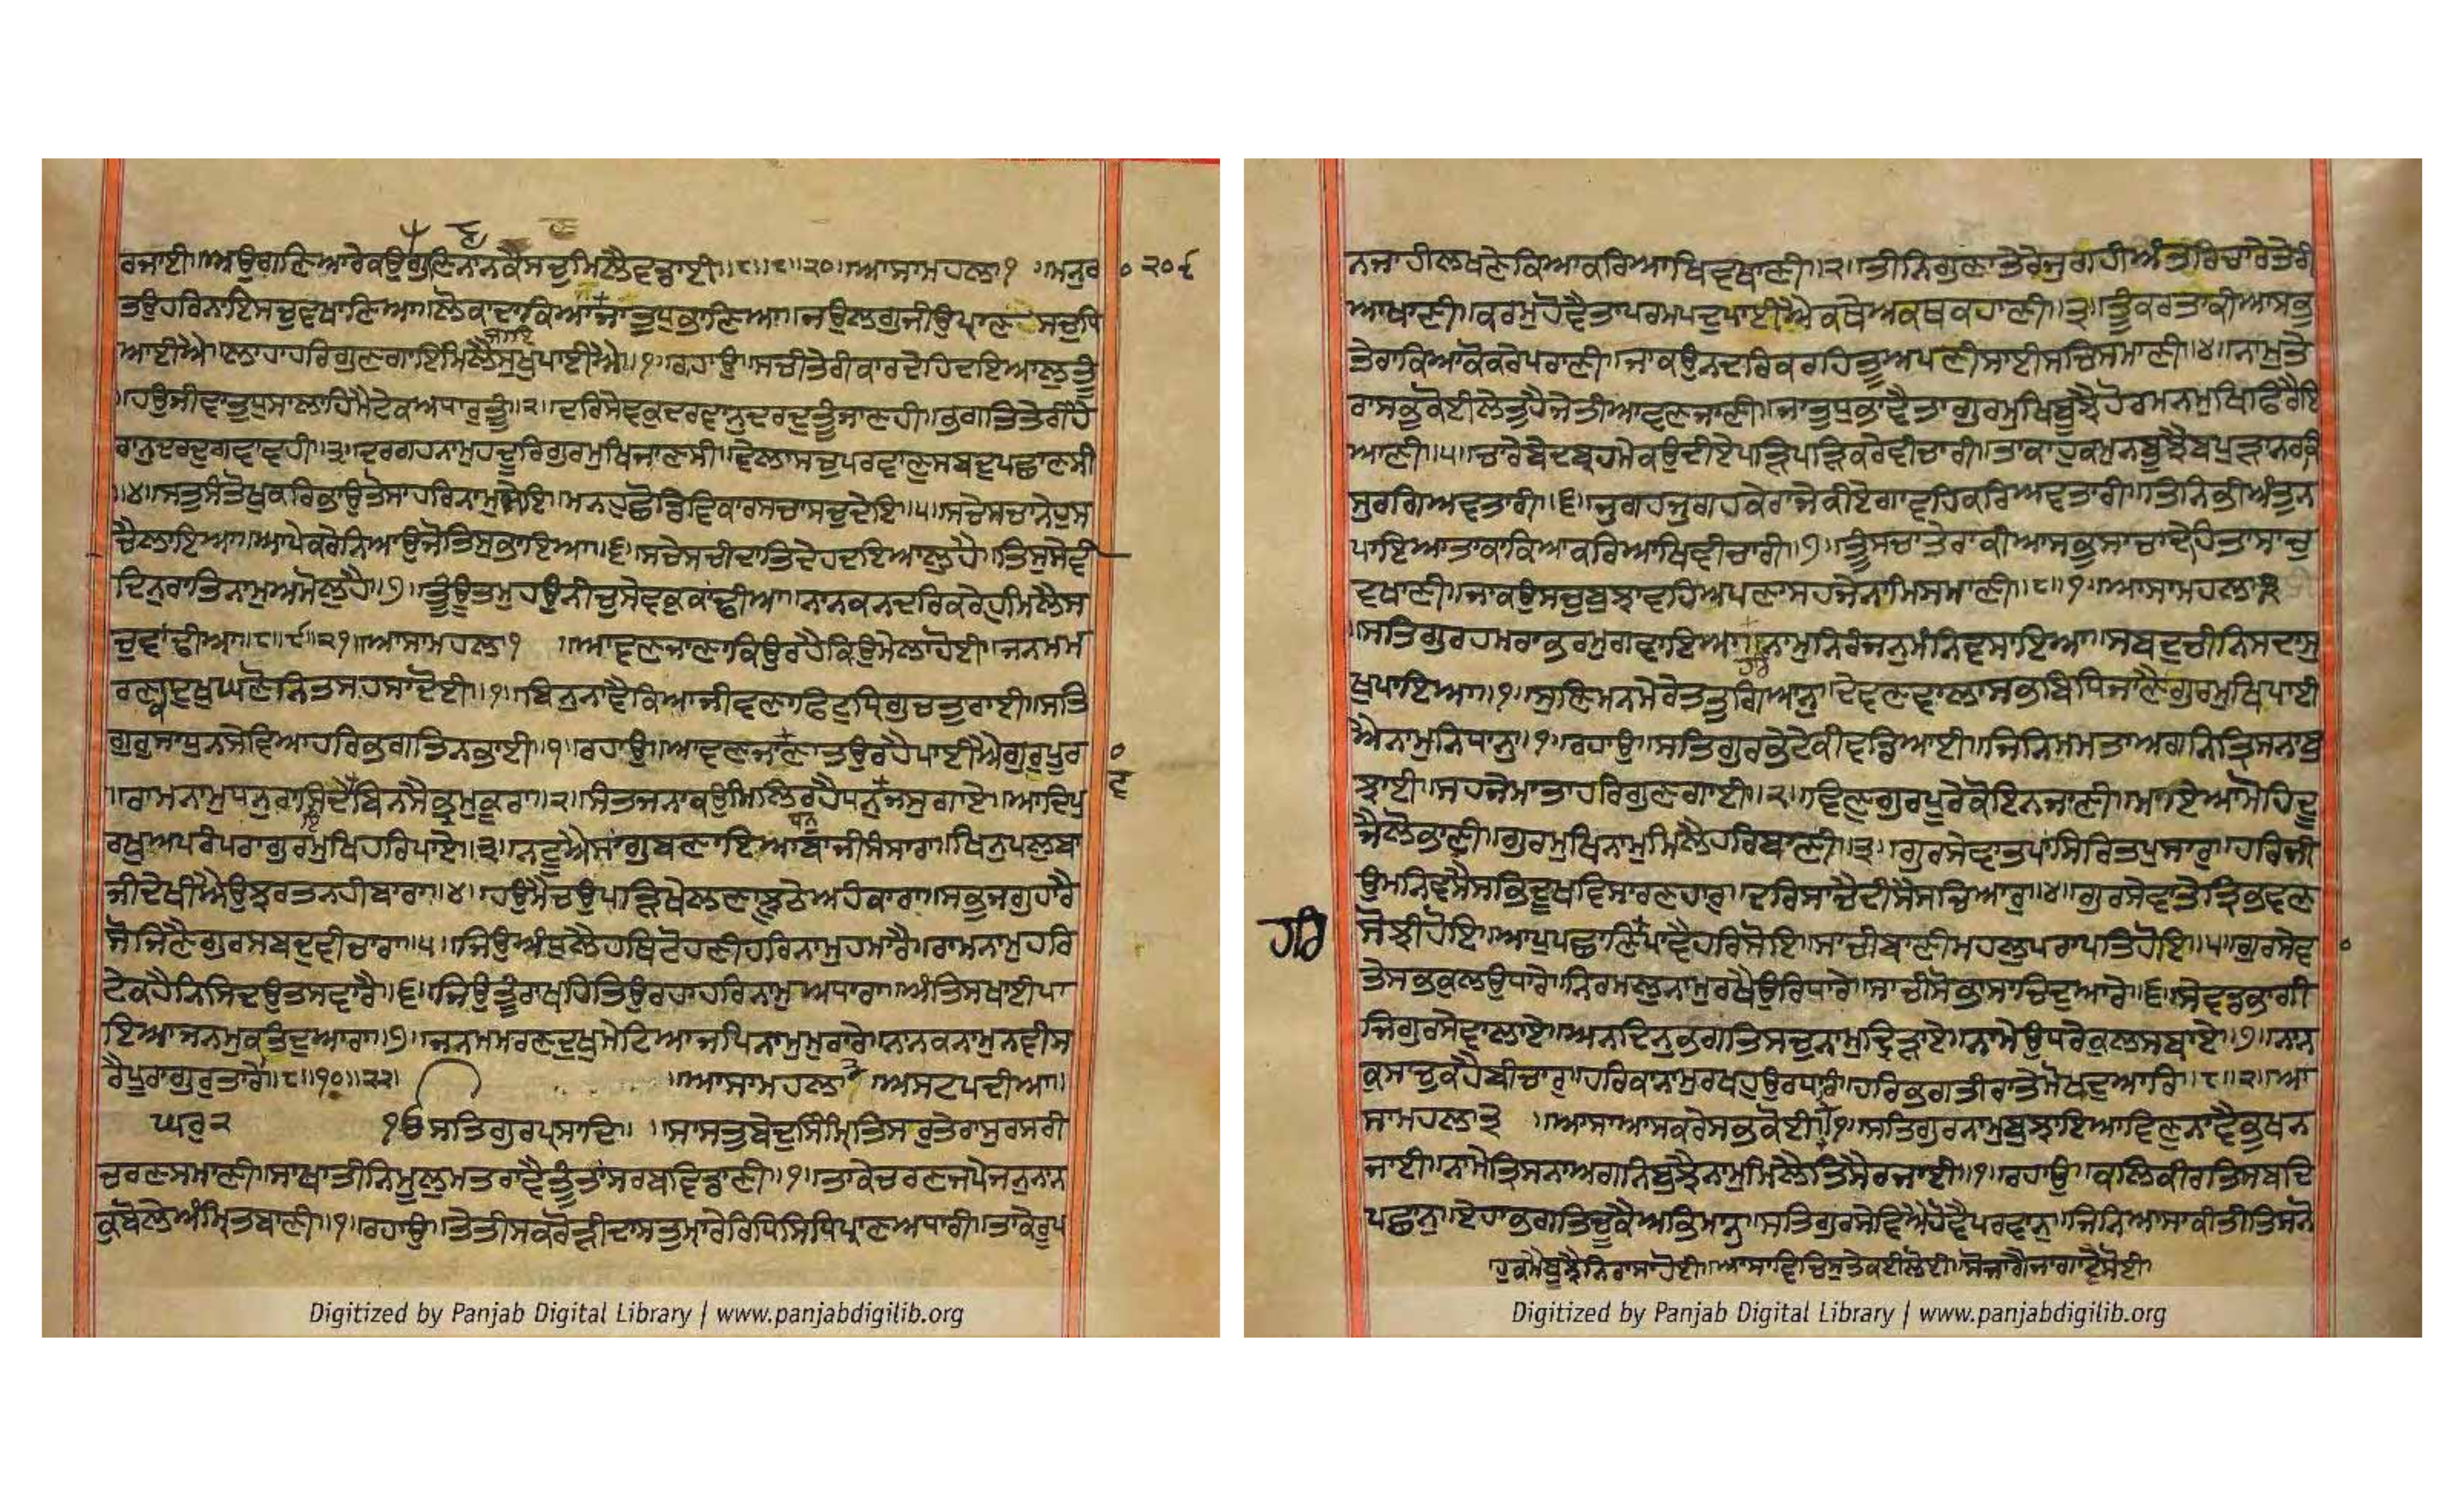 ਰਜਾਈ॥ਅਉਗਣਿਆਰੇਕਉਗੁਣਿਨਾਨਕੈਸਚੁਮਿਲੈਵਡਾਈ॥੮॥੮॥੨੦॥ਆਸਾਮਹਲਾ੧ ॥ਮਨੁਰ
੨੦੯
ਤਉਹਰਿਨਾਇਸਚੁਵਖਾਣਿਆ॥ਲੋਕਾਦਾਕਿਆਜਾਤੁਧੁਭਾਣਿਆ॥ਜਉਲਗੁਜੀਉਪ੍ਰਾਣਸਚੁਧਿ
ਆਈਐ॥ਲਾਹਾਹਰਿਗੁਣਗਾਇਮਿਲੈਸੁਖੁਪਾਈਐ॥੧॥ਰਹਾਉ॥ਸਚੀਤੇਰੀਕਾਰਦੇਹਿਦਇਆਲੁਤੂੰ
॥ਹਉਜੀਵਾਤੁਧੁਸਾਲਾਹਿਮੈਟੇਕਅਧਾਰੁਤੂੰ॥੨॥ਦਰਿਸੇਵਕੁਦਰਵਾਨੁਦਰਦੁਤੂੰਜਾਣਹੀ॥ਭਗਤਿਤੇਰੀਹੈ
ਰਾਨੁਦਰਦੁਗਵਾਵਹੀ॥੩॥ਦਰਗਹਨਾਮੁਹਦੂਰਿਗੁਰਮੁਖਿਜਾਣਸੀ॥ਵੇਲਾਸਚੁਪਰਵਾਣੁਸਬਦੁਪਛਾਣਸੀ
॥੪॥ਸਤੁਸੰਤੋਖੁਕਰਿਭਾਉਤੋਸਾਹਰਿਨਾਮੁਸੇਇ॥ਮਨਹੁਛੋਡਿਵਿਕਾਰਸਚਾਸਚੁਦੇਇ॥੫॥ਸਚੇਸਚਾਨੇਹੁਸ
ਚੈਲਾਇਆ॥ਆਪੇਕਰੇਨਿਆਉਜੋਤਿਸੁਭਾਇਆ॥੬॥ਸਚੇਸਚੀਦਾਤਿਦੇਹਦਇਆਲੁਹੈ॥ਤਿਸੁਸੇਵੀ
ਦਿਨੁਰਾਤਿਨਾਮੁਅਮੋਲੁਹੈ॥੭॥ਤੂੰਉਤਮੁਹਉਨੀਚੁਸੇਵਕੁਕਾਂਢੀਆ॥ਨਾਨਕਨਦਰਿਕਰੇਹੁਮਿਲੈਸ
ਚੁਵਾਂਢੀਆ॥੮॥੯॥੨੧॥ਆਸਾਮਹਲਾ੧ ॥ਆਵਣਜਾਣਾਕਿਉਰਹੈਕਿਉਮੇਲਾਹੋਈ॥ਜਨਮਮ
ਰਣਦੁਖੁਘਣੋਨਿਤਸਹਸਾਦੋਈ॥੧॥ਬਿਨੁਨਾਵੈਕਿਆਜੀਵਣਾਫਿਟੁਧ੍ਰਿਗੁਚਤੁਰਾਈ॥ਸਤਿ
ਗੁਰੁਸਾਧੁਨਸੇਵਿਆਹਰਿਭਗਤਿਨਭਾਈ॥੧॥ਰਹਾਉ॥ਆਵਣਜਾਣਾਤਉਰਹੈਪਾਈਐਗੁਰੁਪੂਰਾ
॥ਰਾਮਨਾਮੁਧਨੁਰਾਸਿਦੇਬਿਨਸੈਭ੍ਰਮੁਕੂਰਾ॥੨॥ਸੰਤਜਨਾਕਉਮਿਲਿਰਹੈਧਨੁਜਸੁਗਾਏ॥ਆਦਿਪੁ
ਰਖੁਅਪਰੰਪਰਾਗੁਰਮੁਖਿਹਰਿਪਾਏ॥੩॥ਨਟੂਐਸਾਂਗੁਬਣਾਇਆਬਾਜੀਸੰਸਾਰਾ॥ਖਿਨੁਪਲੁਬਾ
ਜੀਦੇਖੀਐਉਝਰਤਨਹੀਬਾਰਾ॥੪॥ਹਉਮੈਚਉਪੜਿਖੇਲਣਾਝੂਠੇਅਹੰਕਾਰਾ॥ਸਭੁਜਗੁਹਾਰੈ
ਸੋਜਿਣੈਗੁਰਸਬਦੁਵੀਚਾਰਾ॥੫॥ਜਿਉਅੰਧੁਲੈਹਥਿਟੋਹਣੀਹਰਿਨਾਮੁਹਮਾਰੈ॥ਰਾਮਨਾਮੁਹਰਿ
ਟੇਕਹੈਨਿਸਿਦਉਤਸਵਾਰੈ॥੬॥ਜਿਉਤੂੰਰਾਖਹਿਤਿਉਰਹਾਹਰਿਨਾਮੁਅਧਾਰਾ॥ਅੰਤਿਸਖਾਈਪਾ
ਇਆਜਨਮੁਕਤਿਦੁਆਰਾ॥੭॥ਜਨਮਮਰਣਦੁਖੁਮੇਟਿਆਜਪਿਨਾਮੁਮੁਰਾਰੇ॥ਨਾਨਕਨਾਮੁਨਵੀਸ
ਰੈਪੂਰਾਗੁਰੁਤਾਰੇ॥੮॥੧੦॥੨੨॥ ॥ਆਸਾਮਹਲਾ੩ ਅਸਟਪਦੀਆ॥
ਘਰੁ੨ ੴਸਤਿਗੁਰਪ੍ਰਸਾਦਿ॥ ॥ਸਾਸਤੁਬੇਦੁਸਿੰਮ੍ਰਿਤਿਸਰੁਤੇਰਾਸੁਰਸਰੀ
ਚਰਣਸਮਾਣੀ॥ਸਾਖਾਤੀਨਿਮੂਲੁਮਤਰਾਵੈਤੂੰਤਾਂਸਰਬਵਿਡਾਣੀ॥੧॥ਤਾਕੇਚਰਣਜਪੇਜਨੁਨਾਨ
ਕੁਬੋਲੇਅੰਮ੍ਰਿਤਬਾਣੀ॥੧॥ਰਹਾਉ॥ਤੇਤੀਸਕਰੋੜੀਦਾਸਤੁਮਾਰੇਰਿਧਿਸਿਧਿਪ੍ਰਾਣਅਧਾਰੀ॥ਤਾਕੇਰੂਪ
ਨਜਾਹੀਲਖਣੇਕਿਆਕਰਿਆਖਿਵਖਾਣੀ॥੨॥ਤੀਨਿਗੁਣਾਤੇਰੇਜੁਗਹੀਅੰਤਰਿਚਾਰੇਤੇਰੀ
ਆਖਾਣੀ॥ਕਰਮੁਹੋਵੈਤਾਪਰਮਪਦੁਪਾਈਐਕਥੇਅਕਥਕਹਾਣੀ॥੩॥ਤੂੰਕਰਤਾਕੀਆਸਭੁ
ਤੇਰਾਕਿਆਕੋਕਰੇਪਰਾਣੀ॥ਜਾਕਉਨਦਰਿਕਰਹਿਤੂੰਅਪਣੀਸਾਈਸਚਿਸਮਾਣੀ॥੪॥ਨਾਮੁਤੇ
ਰਾਸਭੁਕੋਈਲੇਤੁਹੈਜੇਤੀਆਵਣਜਾਣੀ॥ਜਾਤੁਧੁਭਾਵੈਤਾਗੁਰਮੁਖਿਬੂਝੈਹੋਰਮਨਮੁਖਿਫਿਰੈਇ
ਆਣੀ॥੫॥ਚਾਰੇਬੇਦਬ੍ਰਹਮੇਕਉਦੀਏਪੜਿਪੜਿਕਰੇਵੀਚਾਰੀ॥ਤਾਕਾਹੁਕਮੁਨਬੂਝੈਬਪੁੜਾਨਰਕਿ
ਸੁਰਗਿਅਵਤਾਰੀ॥੬॥ਜੁਗਹਜੁਗਹਕੇਰਾਜੇਕੀਏਗਾਵਹਿਕਰਿਅਵਤਾਰੀ॥ਤਿਨਿਭੀਅੰਤੁਨ
ਪਾਇਆਤਾਕਾਕਿਆਕਰਿਆਖਿਵੀਚਾਰੀ॥੭॥ਤੂੰਸਚਾਤੇਰਾਕੀਆਸਭੁਸਾਚਾਦੇਹਿਤਾਸਾਚੁ
ਵਖਾਣੀ॥ਜਾਕਉਸਚੁਬੁਝਾਵਹਿਅਪਣਾਸਹਜੇਨਾਮਿਸਮਾਣੀ॥੮॥੧॥ਆਸਾਮਹਲਾ੩
॥ਸਤਿਗੁਰਹਮਰਾਭਰਮੁਗਵਾਇਆ॥ਨਾਮੁਨਿਰੰਜਨੁਮੰਨਿਵਸਾਇਆ॥ਸਬਦੁਚੀਨਿਸਦਾਸੁ
ਖੁਪਾਇਆ॥੧॥ਸੁਣਿਮਨਮੇਰੇਤਤੁਗਿਆਨੁ॥ਦੇਵਣਵਾਲਾਸਭਬਿਧਿਜਾਣੈਗੁਰਮੁਖਿਪਾਈ
ਐਨਾਮੁਨਿਧਾਨੁ॥੧॥ਰਹਾਉ॥ਸਤਿਗੁਰਭੇਟੇਕੀਵਡਿਆਈ॥ਜਿਨਿਮਮਤਾਅਗਨਿਤ੍ਰਿਸਨਾਬੁ
ਝਾਈ॥ਸਹਜੇਮਾਤਾਹਰਿਗੁਣਗਾਈ॥੨॥ਵਿਣੁਗੁਰਪੂਰੇਕੋਇਨਜਾਣੀ॥ਮਾਇਆਮੋਹਿਦੂ
ਜੈਲੋਭਾਣੀ॥ਗੁਰਮੁਖਿਨਾਮੁਮਿਲੈਹਰਿਬਾਣੀ॥੩॥ਗੁਰਸੇਵਾਤਪਾਂਸਿਰਿਤਪੁਸਾਰੁ॥ਹਰਿਜੀ
ਉਮਨਿਵਸੈਸਭਿਦੂਖਵਿਸਾਰਣਹਾਰੁ॥ਦਰਿਸਾਚੈਦੀਸੈਸਚਿਆਰੁ॥੪॥ਗੁਰਸੇਵਾਤੇਤ੍ਰਿਭਵਣ
ਹਰਿ
ਸੋਝੀਹੋਇ॥ਆਪੁਪਛਾਣਿਪਾਵੈਹਰਿਸੋਇ॥ਸਾਚੀਬਾਣੀਮਹਲੁਪਰਾਪਤਿਹੋਇ॥੫॥ਗੁਰਸੇਵਾ
ਤੇਸਭਕੁਲਉਧਾਰੇ॥ਨਿਰਮਲੁਨਾਮੁਰਖੈਉਰਿਧਾਰੇ॥ਸਾਚੀਸੋਭਾਸਾਚਿਦੁਆਰੇ॥੬॥ਸੇਵਡਭਾਗੀ
ਜਿਗੁਰਸੇਵਾਲਾਏ॥ਅਨਦਿਨੁਭਗਤਿਸਚੁਨਾਮੁਦ੍ਰਿੜਾਏ॥ਨਾਮੇਉਧਰੇਕੁਲਸਬਾਏ॥੭॥ਨਾਨ
ਕੁਸਾਚੁਕਹੈਬੀਚਾਰੁ॥ਹਰਿਕਾਨਾਮੁਰਖਹੁਉਰਧਾਰਿ॥ਹਰਿਭਗਤੀਰਾਤੇਮੋਖਦੁਆਰਿ॥੮॥੨॥ਆ
ਸਾਮਹਲਾ੩ ॥ਆਸਾਆਸਕਰੇਸਭੁਕੋਈ॥੧॥ਸਤਿਗੁਰਨਾਮੁਬੁਝਾਇਆਵਿਣੁਨਾਵੈਭੁਖਨ
ਜਾਈ॥ਨਾਮੇਤ੍ਰਿਸਨਾਅਗਨਿਬੁਝੈਨਾਮੁਮਿਲੈਤਿਸੈਰਜਾਈ॥੧॥ਰਹਾਉ॥ਕਲਿਕੀਰਤਿਸਬਦਿ
ਪਛਾਨੁ॥ਏਹਾਭਗਤਿਚੂਕੈਅਭਿਮਾਨੁ॥ਸਤਿਗੁਰਸੇਵਿਐਹੋਵੈਪਰਵਾਨੁ॥ਜਿਨਿਆਸਾਕੀਤੀਤਿਸਨੋ
ਹੁਕਮੈਬੂਝੈਨਿਰਾਸਾਹੋਈ॥ਆਸਾਵਿਚਿਸੁਤੇਕਈਲੋਈ॥ਸੋਜਾਗੈਜਾਗਾਵੈਸੋਈ
Digitized by Panjab Digital Library | www.panjabdigilib.org
Digitized by Panjab Digital Library | www.panjabdigilib.org